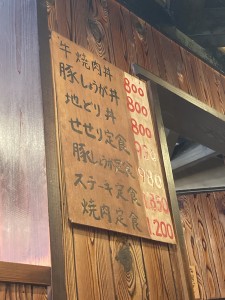 牛焼肉丼 800
豚しょうが丼 800
地どり丼 800
せせり定食 930
豚しょうが定食 930
ステーキ定食 1,350
焼肉定食 1,200